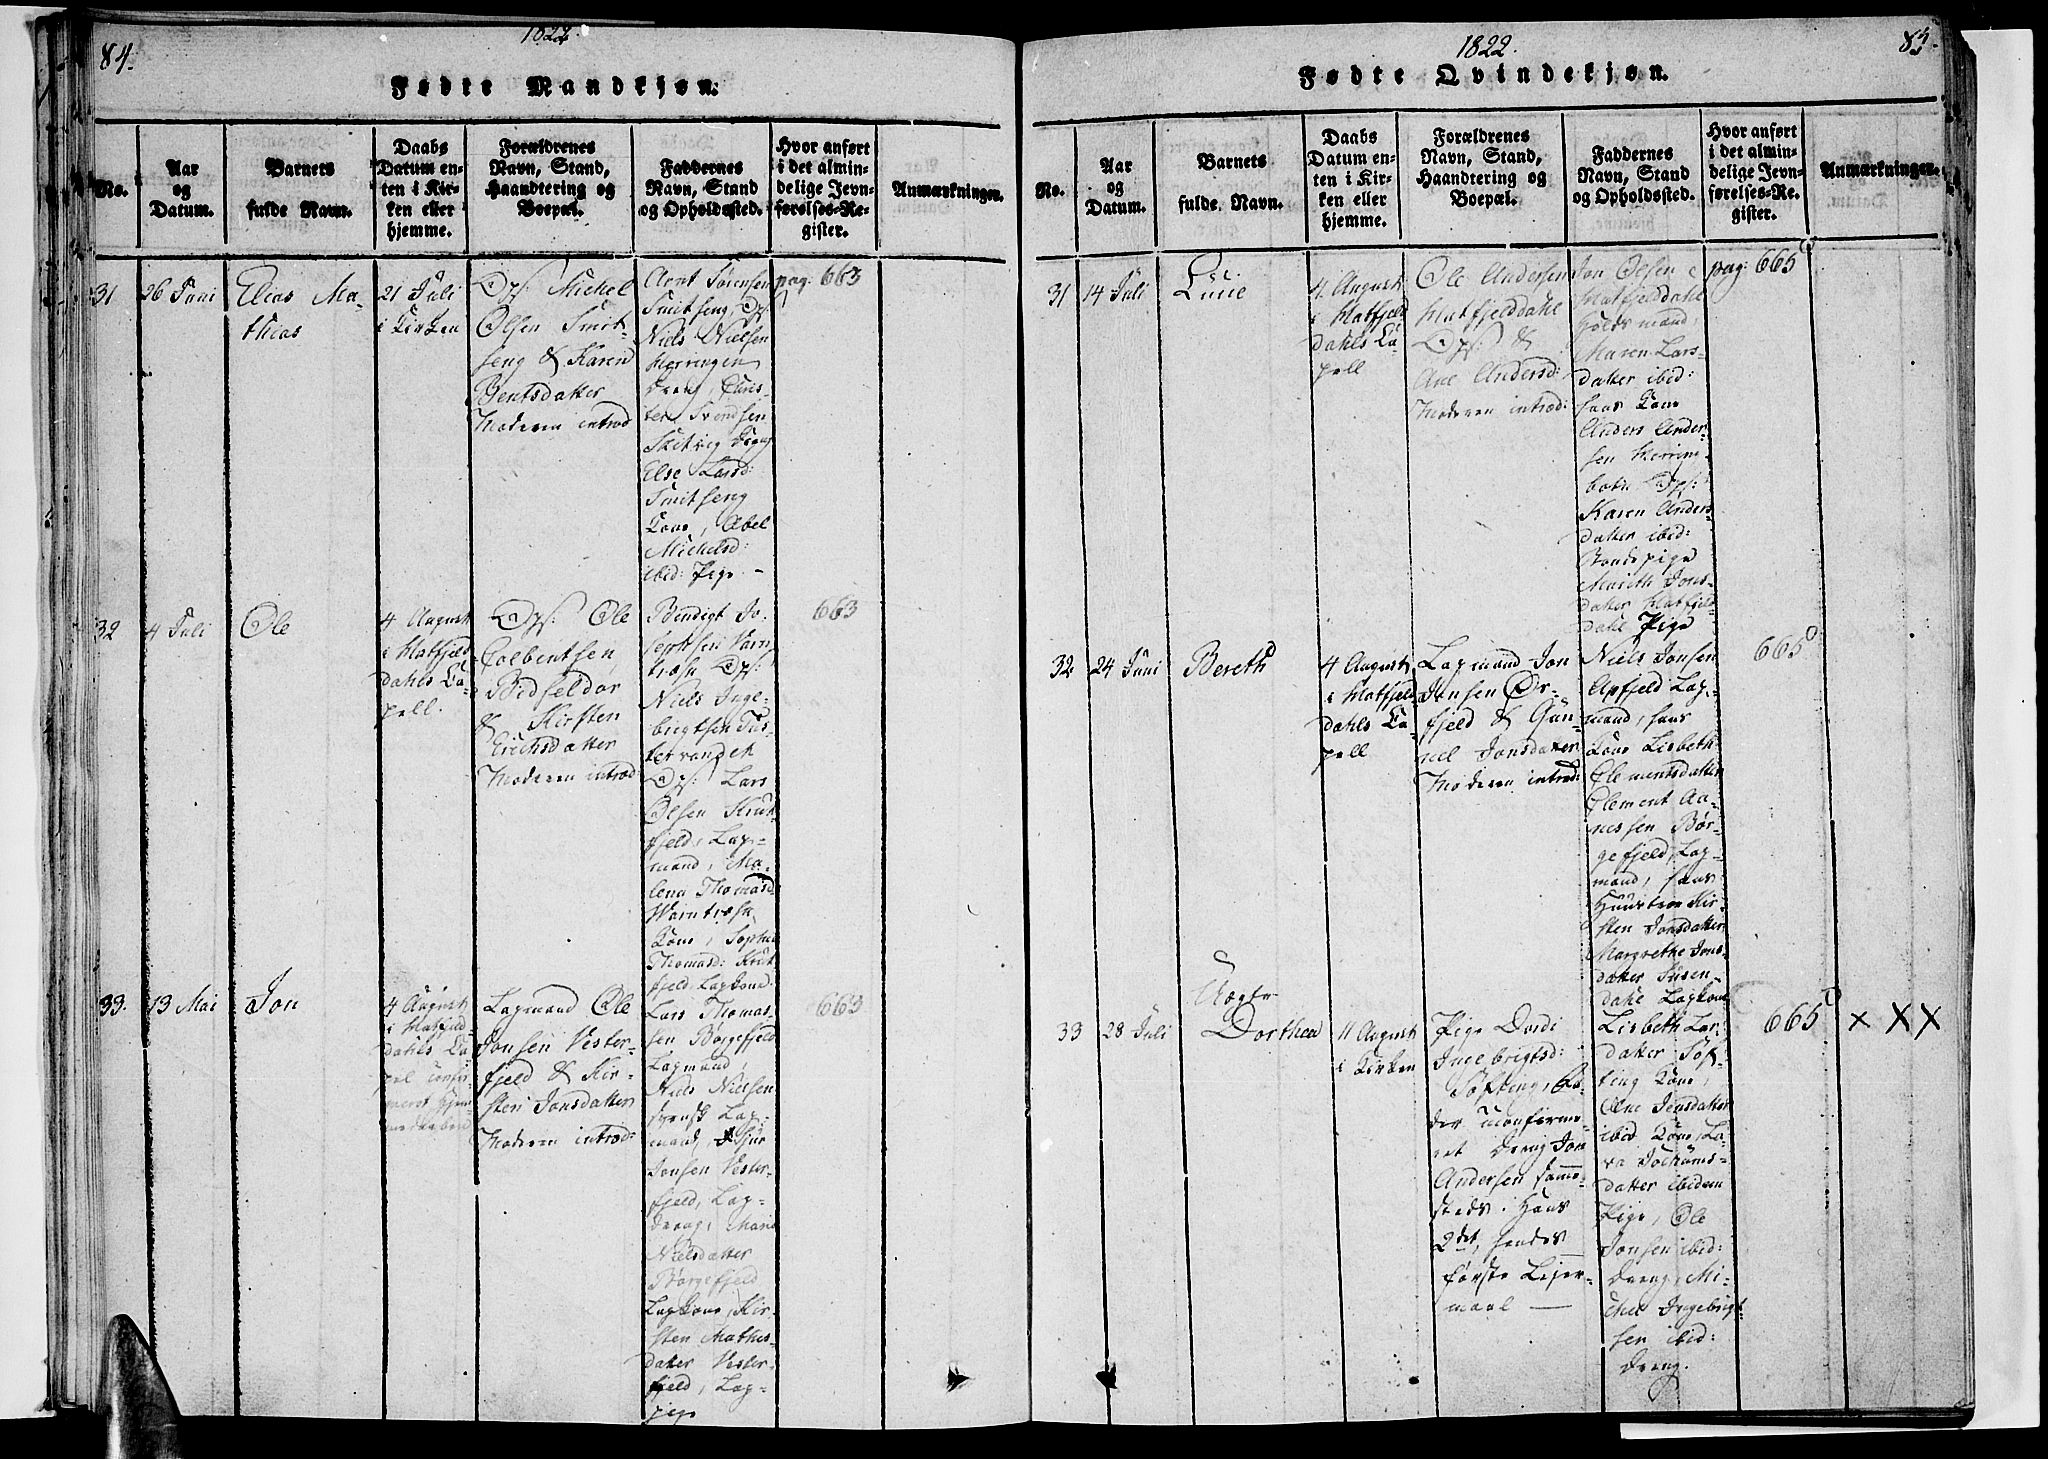 84.
1822.
Fødte Mandkjøn.
No.
Aar
og
Datum.
Barnets
fulde Navn.
Daabs
Datum en-
ten i Kir-
ken eller
hjemme.
Forældrenes
Navn, Stand,
Haandtering og
Boepæl.
Faddernes
Navn, Stand
og Opholdssted.
Hvor anført
i det almin-
delige Jevn-
førelses-Re-
gister.
Anmærkninger.
31
26 Juni
Elias Ma-
thias
21 Juli
i Kirken
Ops. Michel
Olsen Smit-
seng & Karen
Bentsdatter
Moderen introd
Arnt Sørensen
Smitseng, Ops.
Niels Nielsen
Herringen
Dreng, Chris-
ten Svendsen
Dreng
Else Larsd:
Smitseng
Kone, Abel
Michelsd:
ibid: Pige. -
pag. 663
32
4 Juli
Ole
4 August
i Hatfjeld
dahls Ca-
pell.
Ops. Ole
Colbentsen
& Kirsten
Erichsdatter
Moderen introd:
Bendigt Jo-
sephsen Varn-
træsk Ops:
Niels Inge-
brigtsen Tus-
tervandet
Ops: Lars
Olsen Krut-
fjeld, Lap-
mand, Ma-
lena Thomasd
Varntræsk
Kone, Sophia
Thomasd: Krut
fjeld, Lapkone.
663
33.
13 Mai
Jon
4 August
i Hatfjeld
dahls Ca-
pel confir-
meret hjem-
medaaben
Lapmand Ole
Jonsen Vester-
fjeld & Kir-
sten Jonsdatter
Moderen introd:
Lars Thomas-
sen Børgefjeld
Lapmand,
Niels Nielsen
svensk Lap-
mand,
Jonsen Vester-
fjeld, Lap-
dreng, Maria
Nielsdatter
Børgefjeld
Lapkone, Kir-
sten Mathis-
datter Vester-
fjeld, Lap-
pige
663
85.
1822.
Fødte Qvindekjøn.
No.
Aar
og
Datum.
Barnets
fulde Navn.
Daabs
Datum en-
ten i Kir-
ken eller
hjemme.
Forældrenes
Navn, Stand,
Haandtering og
Boepæl.
Faddernes
Navn, Stand
og Opholdssted.
Hvor anført
i det almin-
delige Jevn-
førelses-Re-
gister.
Anmærkninger.
31
14 Juli
4. August
i Hatfjeld
dahls Ca-
pell
Ole Andersen
Hatfjelddahl
Ops: &
Ane Andersd:
Moderen introd:
Jon Olsen
Hatfjelddahl
mand,
Maren Lars-
datter ibid:
hans Kone
Anders Ander-
sen Herring-
botn Ops:
Karen Anders-
datter ibid:
Bondepige
Mareth Jons-
datter Hatfjeld-
dahl Pige
pag. 665
32
24 Juni
Bereth
4 August
i Hatfjeld
dahls Ca-
pell
Lapmand Jon
Jonsen Ør-
fjeld & Gun-
nel Jonsdatter
Moderen introd:
Niels Jonsen
Apfjeld Lap-
mand, hans
Kone Lisbeth
Clementsdatter
Clement Aa-
nessen Bør-
gefjeld, Lap-
mand, hans
Huustroe Kir-
sten Jonsdatter
Margrethe Jons-
datter Susen-
dahl Lapkone
665
33
28 Juli
Uægte
Dorthea
11 August
i Kirken
Pige Dordi
Ingebrigtsd:
Søfting, &
der uconfirme-
ret dreng Jon
Andersen samme-
steds. Hans
2det, hendes
første Leier-
maal —
Lisbeth Lar-
datter Søf-
ting Kone,
Olne Jensdatter
ibid Kone, La-
va Jochums-
datter ibidem
Pige, Ole
Jonsen ibid:
dreng, Mi-
chel Ingebrigt-
sen ibid:
dreng.
665
× XX